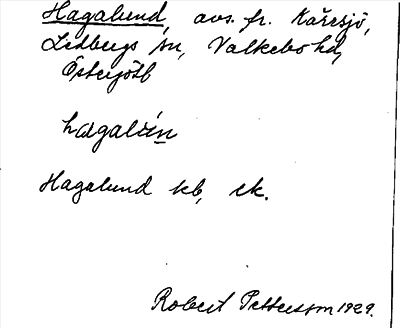 Hagalund, avs. fr. Kåresjö,
Ledbergs sn, Valkebo hd,
Östergötl
hagalún
Hagalund kb, ek.
Robert Pettersson 1929.